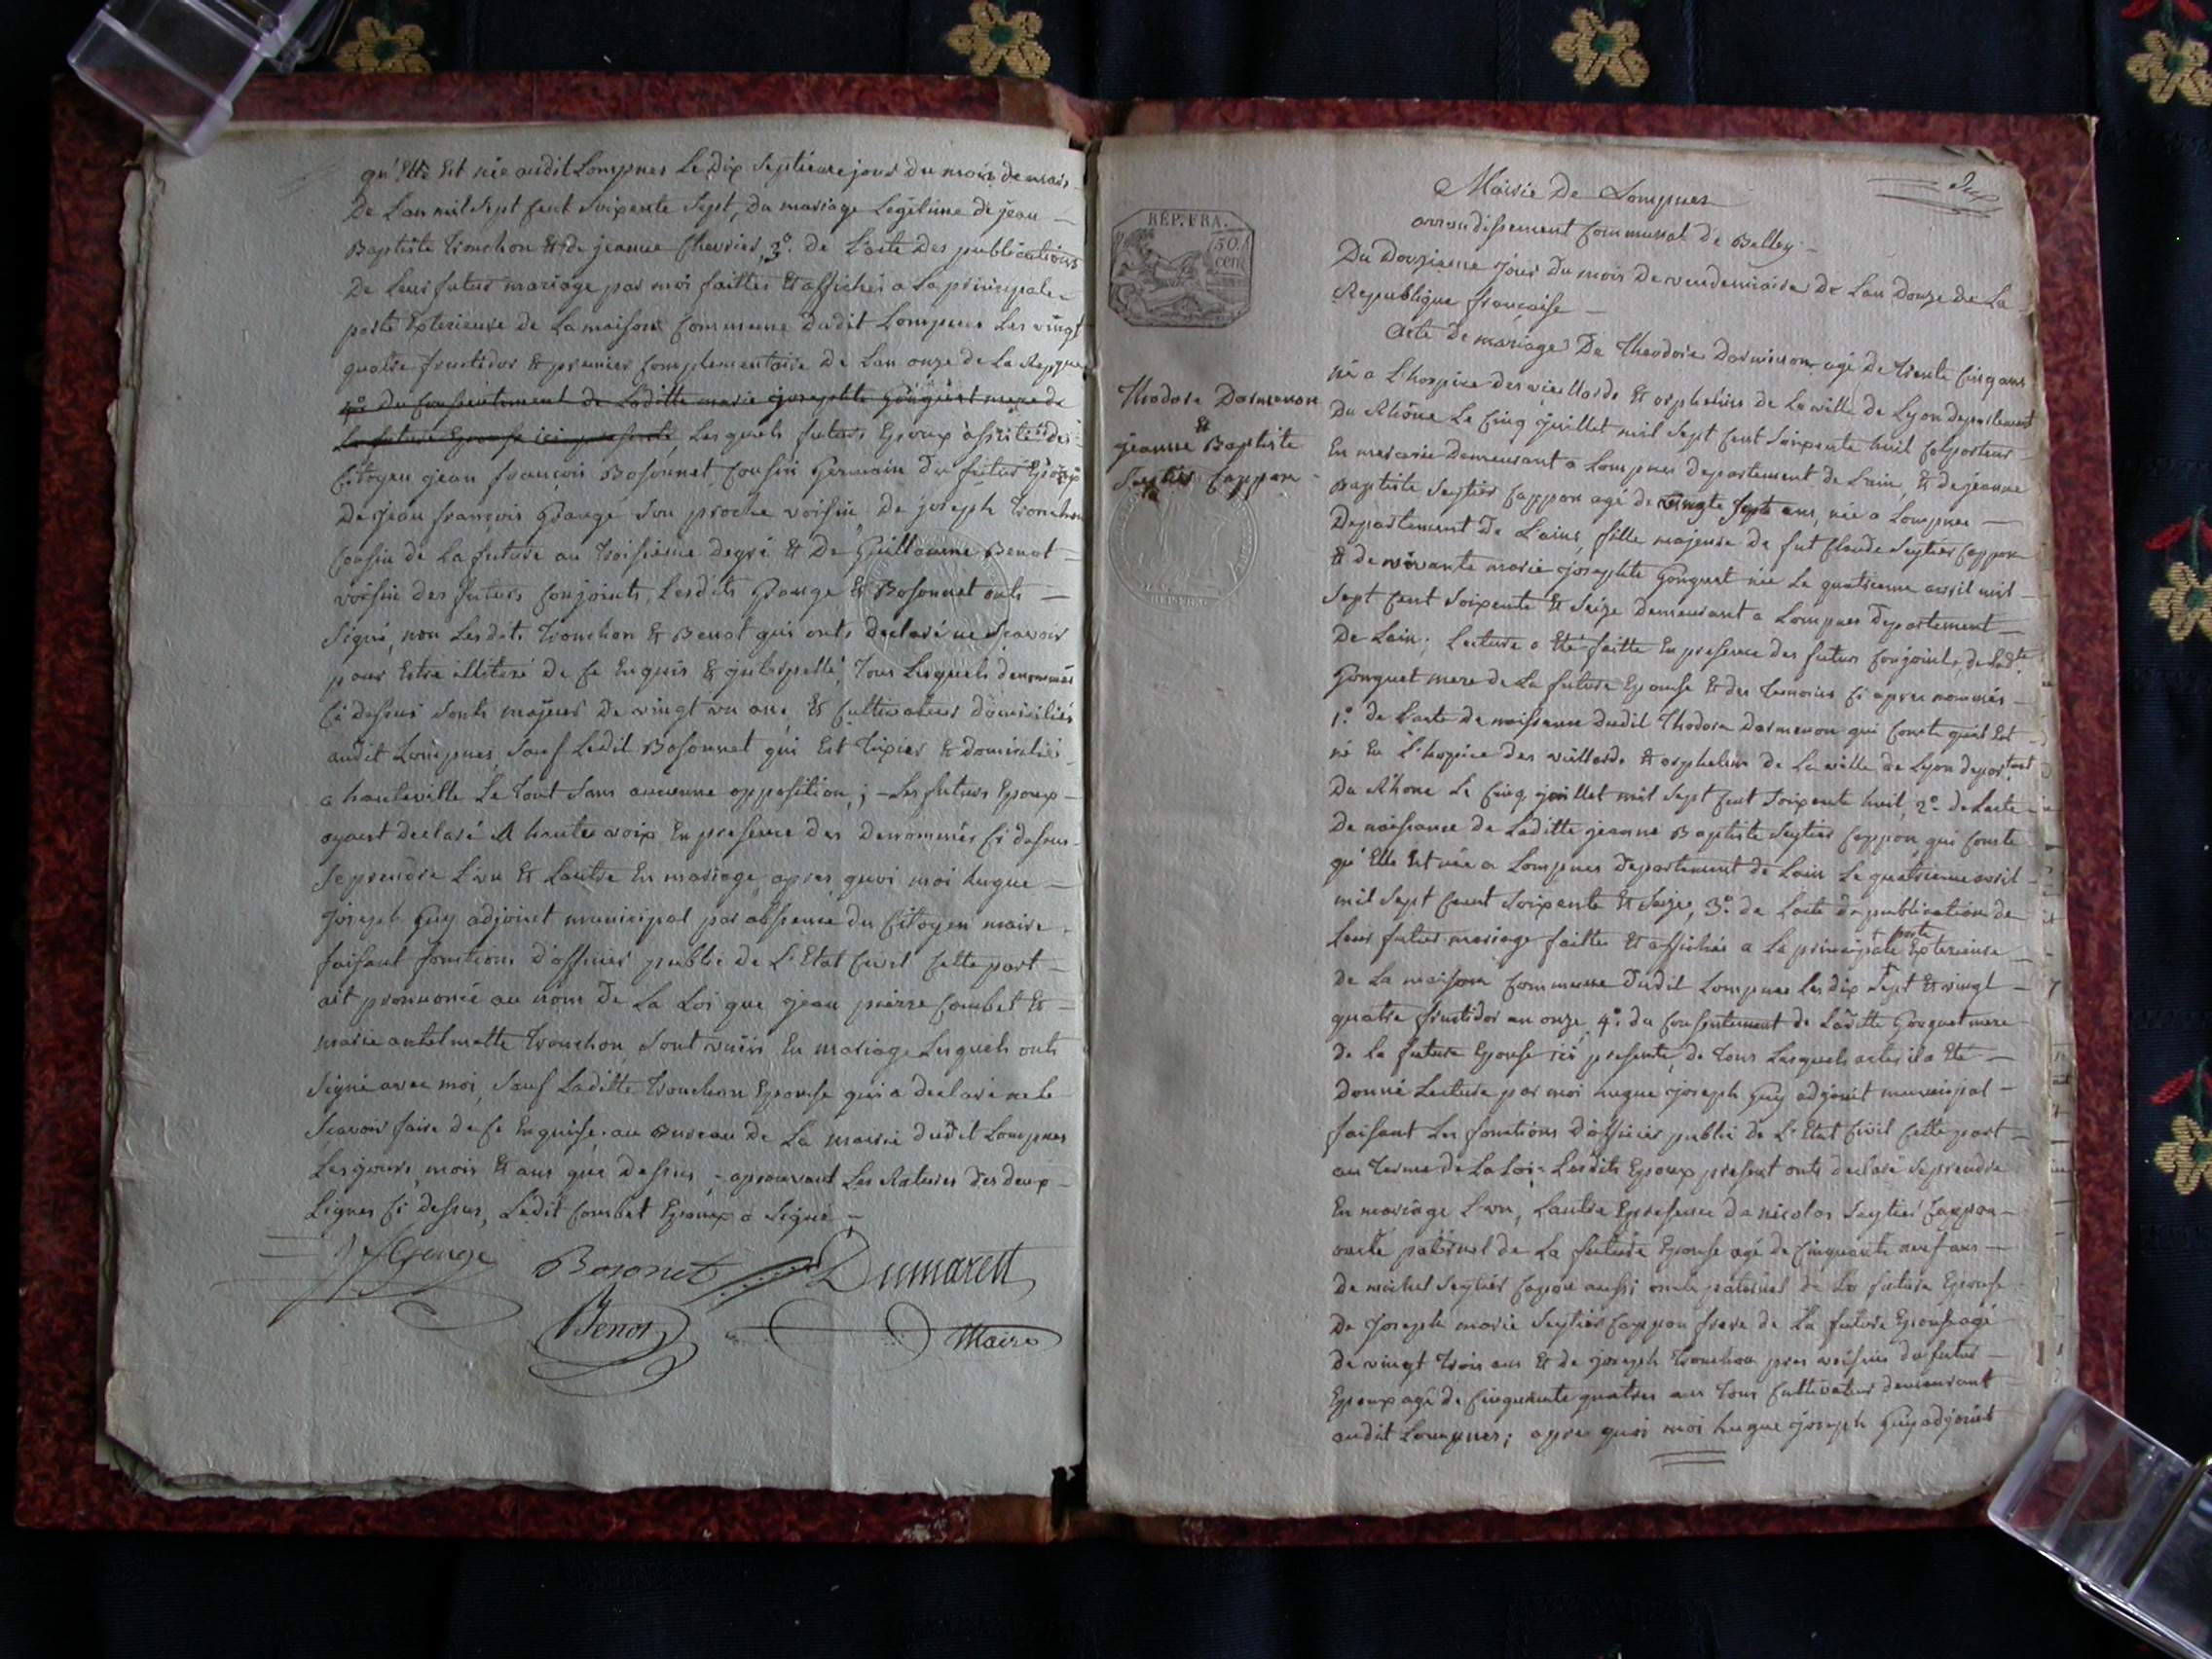 qu'Elle Est née audit Lompnes Le Dix Septieme jour du mois de mars
De Lan mil Sept Cent Soixente Sept, Du mariage Legitime de jean
Baptiste Tronchon Et de jeanne Chevrier, 3.° de L'acte Des publications
De Leur futur mariage par moi faittes Et affichés a La principale
porte Exterieure de La maison Commune dudit Lompnes Les vingt
quatre fructidor & premier Complementaire de Lan onze de La Repque
4.° Du Consentement de Laditte marie josephte Gonguet mere de
La future Epouse ici presente, Lesquels futurs Epoux assistés des
Citoyen jean françois Bosonnet Cousin Germain du futur Epoux
De jean françois Grange Son proche voisin, De joseph Tronchon
Cousin de La future au Troisieme degré & De Guillaume Benot
voisin des futurs Conjoints, Lesdits Grange & Bosonnet onts
Signé, non Lesdits Tronchon & Benot qui onts declaré ne Scavoir
pour Estre illiteré de Ce Enquis & jnterpellé, Tous Lesquels denommés
Ci dessus Sonts majeur De vingt un ans, & Cultivateurs domiciliés
audit Lompnes, Sauf Ledit Bosonnet qui Est Tixier & domicilié
a hauteville Le Tout Sans aucunne opposition; Les futurs Epoux
ayant declaré A haute voix En presence des Denommés Ci dessus
Se prendre L'un Et Lautre En mariage, apres quoi moi hugue
Joseph Guy adjoint municipal par absence du Citoyen maire
faisant fonctions d'officier public de L'Etat Civil Cette part
ait prononcé au nom De La Loi que jean pierre Combet Et
marie antelmette Tronchon Sont unis En mariage Lesquels onts
Signé avec moi, Sauf Laditte Tronchon Epouse qui a declaré ne Le
Scavoir faire de Ce Enquise. au Bureau de La mairie dudit Lompnes
Les jours, mois & ans que dessus, approuvant Les Ratures des deux
Lignes Ci dessus, Ledit Combet Epoux a Signé
Jf Grange Bosonet Dumarest
Benot Maire
Mairie De Lompnes
arrondissement Communal de Belley
Du Douzieme Jour du mois De vendemiaire De Lan Douze De La
Republique française
REP. FRA.
50
cent
Acte De mariage De Theodore Darmenon agé de Trente Cinq ans
né a L'hospice des vieillards Et orphelins de La ville de Lyon departement
Du Rhône Le Cinq juillet mil Sept Cent Soixente huit Colporteur
En mercerie Demeurant a Lompnes departement de Lain, & de jeanne
Baptiste Seytier Cappon agé de vingte Sept ans, née a Lompnes
Departement De Lain, fille majeure de fut Claude Seytier Cappon
& de vivante marie josephte Gonguet née Le quatrieme avril mil
Sept Cent Soixente & Seize Demeurant a Lompnes Departement
De Lain; Lecture a Eté faitte En presence des futurs Conjoints, de Ladte
Gonguet mere de La future Epouse & des Temoins Ci apres nommés
1.° de L'acte de naissance dudit Thodore Darmenon qui Conste quil Est
né En L'hospice des vieillards & orphelins de La ville de Lyon departent
Du Rhone Le Cinq juillet mil Sept Cent Soixente huit, 2.° de Lacte
De naissance de Laditte jeanne Baptiste Seytier Cappon qui Conste
qu'Elle Est née a Lompnes Departement de Lain Le quatrieme avril
mil Sept Cent Soixente Et Seize, 3.° de Lacte de publication de
porte
Leur futur mariage faittes Et affichés a La principale Exterieure
de La maison Commune Dudit Lompnes Les dix Sept & vingt
quatre fructidor an onze, 4.° du Consentement de Laditte Gonguet mere
de la future Epouse ici presente, de Tous Lesquels actes il a Eté
Donné Lecture par moi hugue joseph Guy adjoint municipal
faisant Les fonctions d'officier public de L'Etat Civil Cette part
au Terme de La Loi. Lesdits Epoux present onts declaré Se prendre
En mariage L'un, Lautre En presence De nicolas Seytier Cappon
oncle paternel de La future Epouse agé de Cinquante neuf ans
de michel Seytier Capon aussi oncle paternel de La future Epouse
De Joseph marie Seytier Cappon frere de La future Epouse agé
De vingt Trois ans & de joseph Tronchon pres voisin du futur
Epoux agé de Cinquante quatres ans Tous Cultivateur demeurant
audit Lompnes; apres quoi moi hugue joseph Guy adjoint
Thodore Darmenon
&
jeanne Baptiste
Seytier Cappon